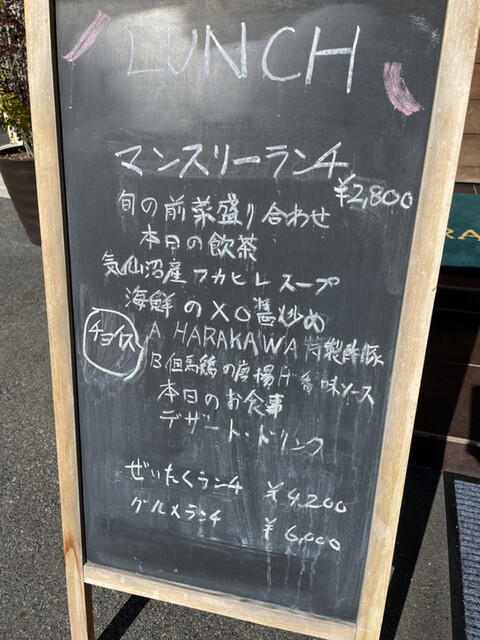 LUNCH
マンスリーランチ
¥2,800
旬の前菜盛り合わせ
本日の飲茶
気仙沼産フカヒレスープ
海鮮のXO醤炒め
チョイス
A HARAKAWA特製酢豚
B 但馬鶏の唐揚げ香味ソース
本日のお食事
デザート・ドリンク
ぜいたくランチ ¥4,200
グルメランチ ¥6,000
RA